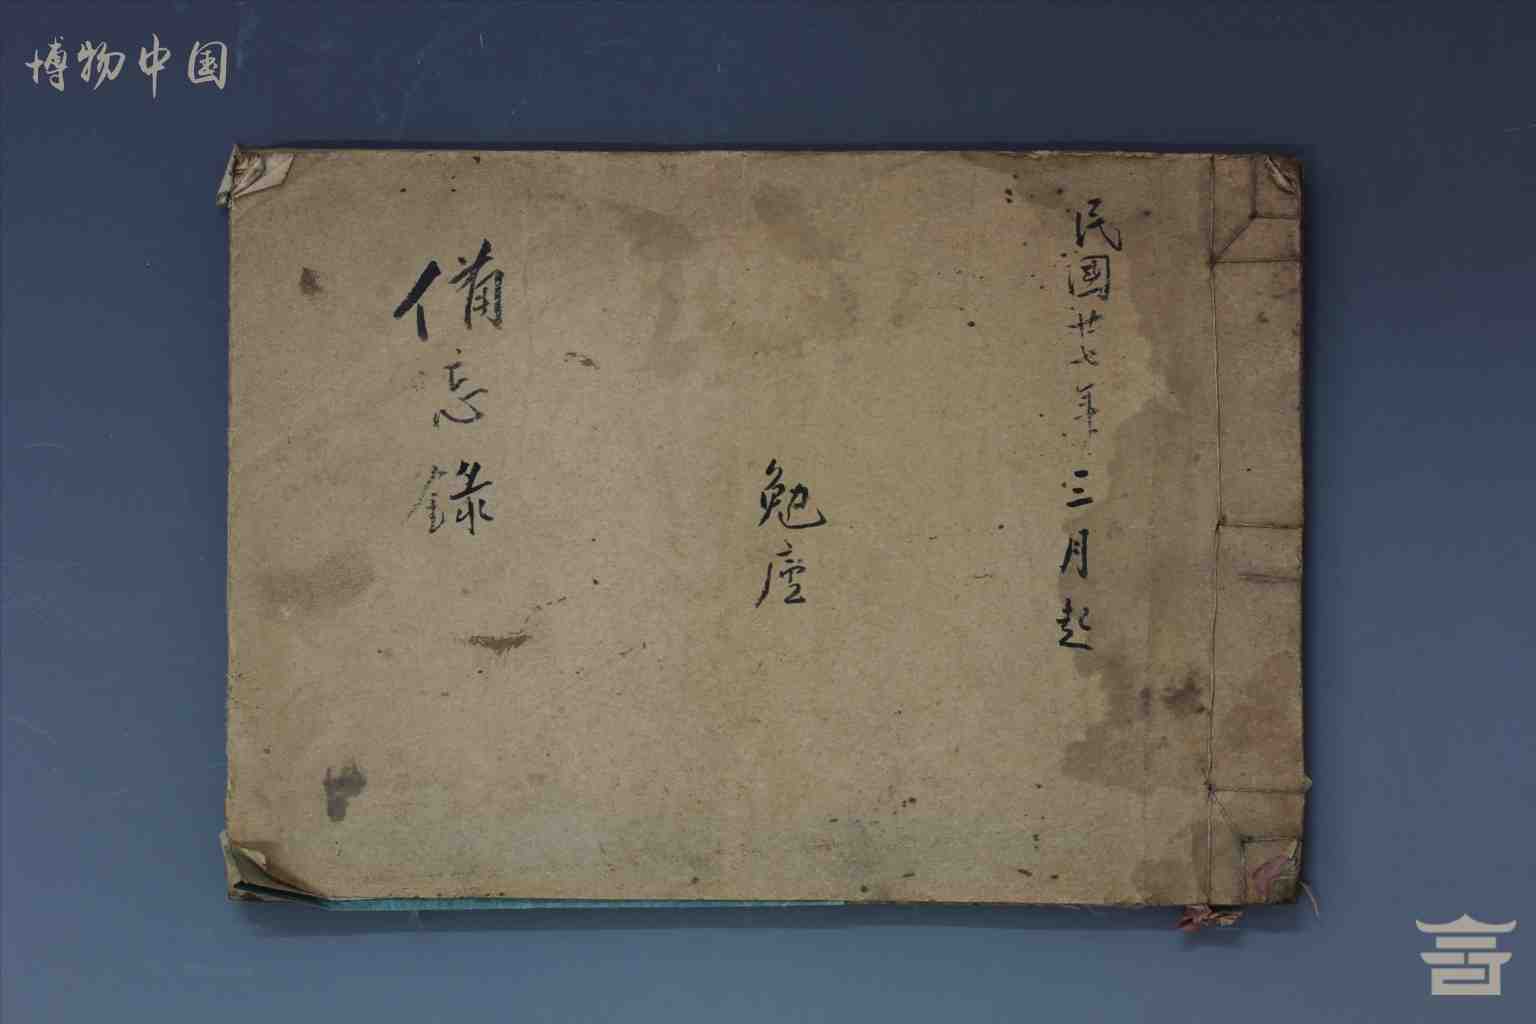 博物中国
民國廿七年三月起
勉廬
備忘錄